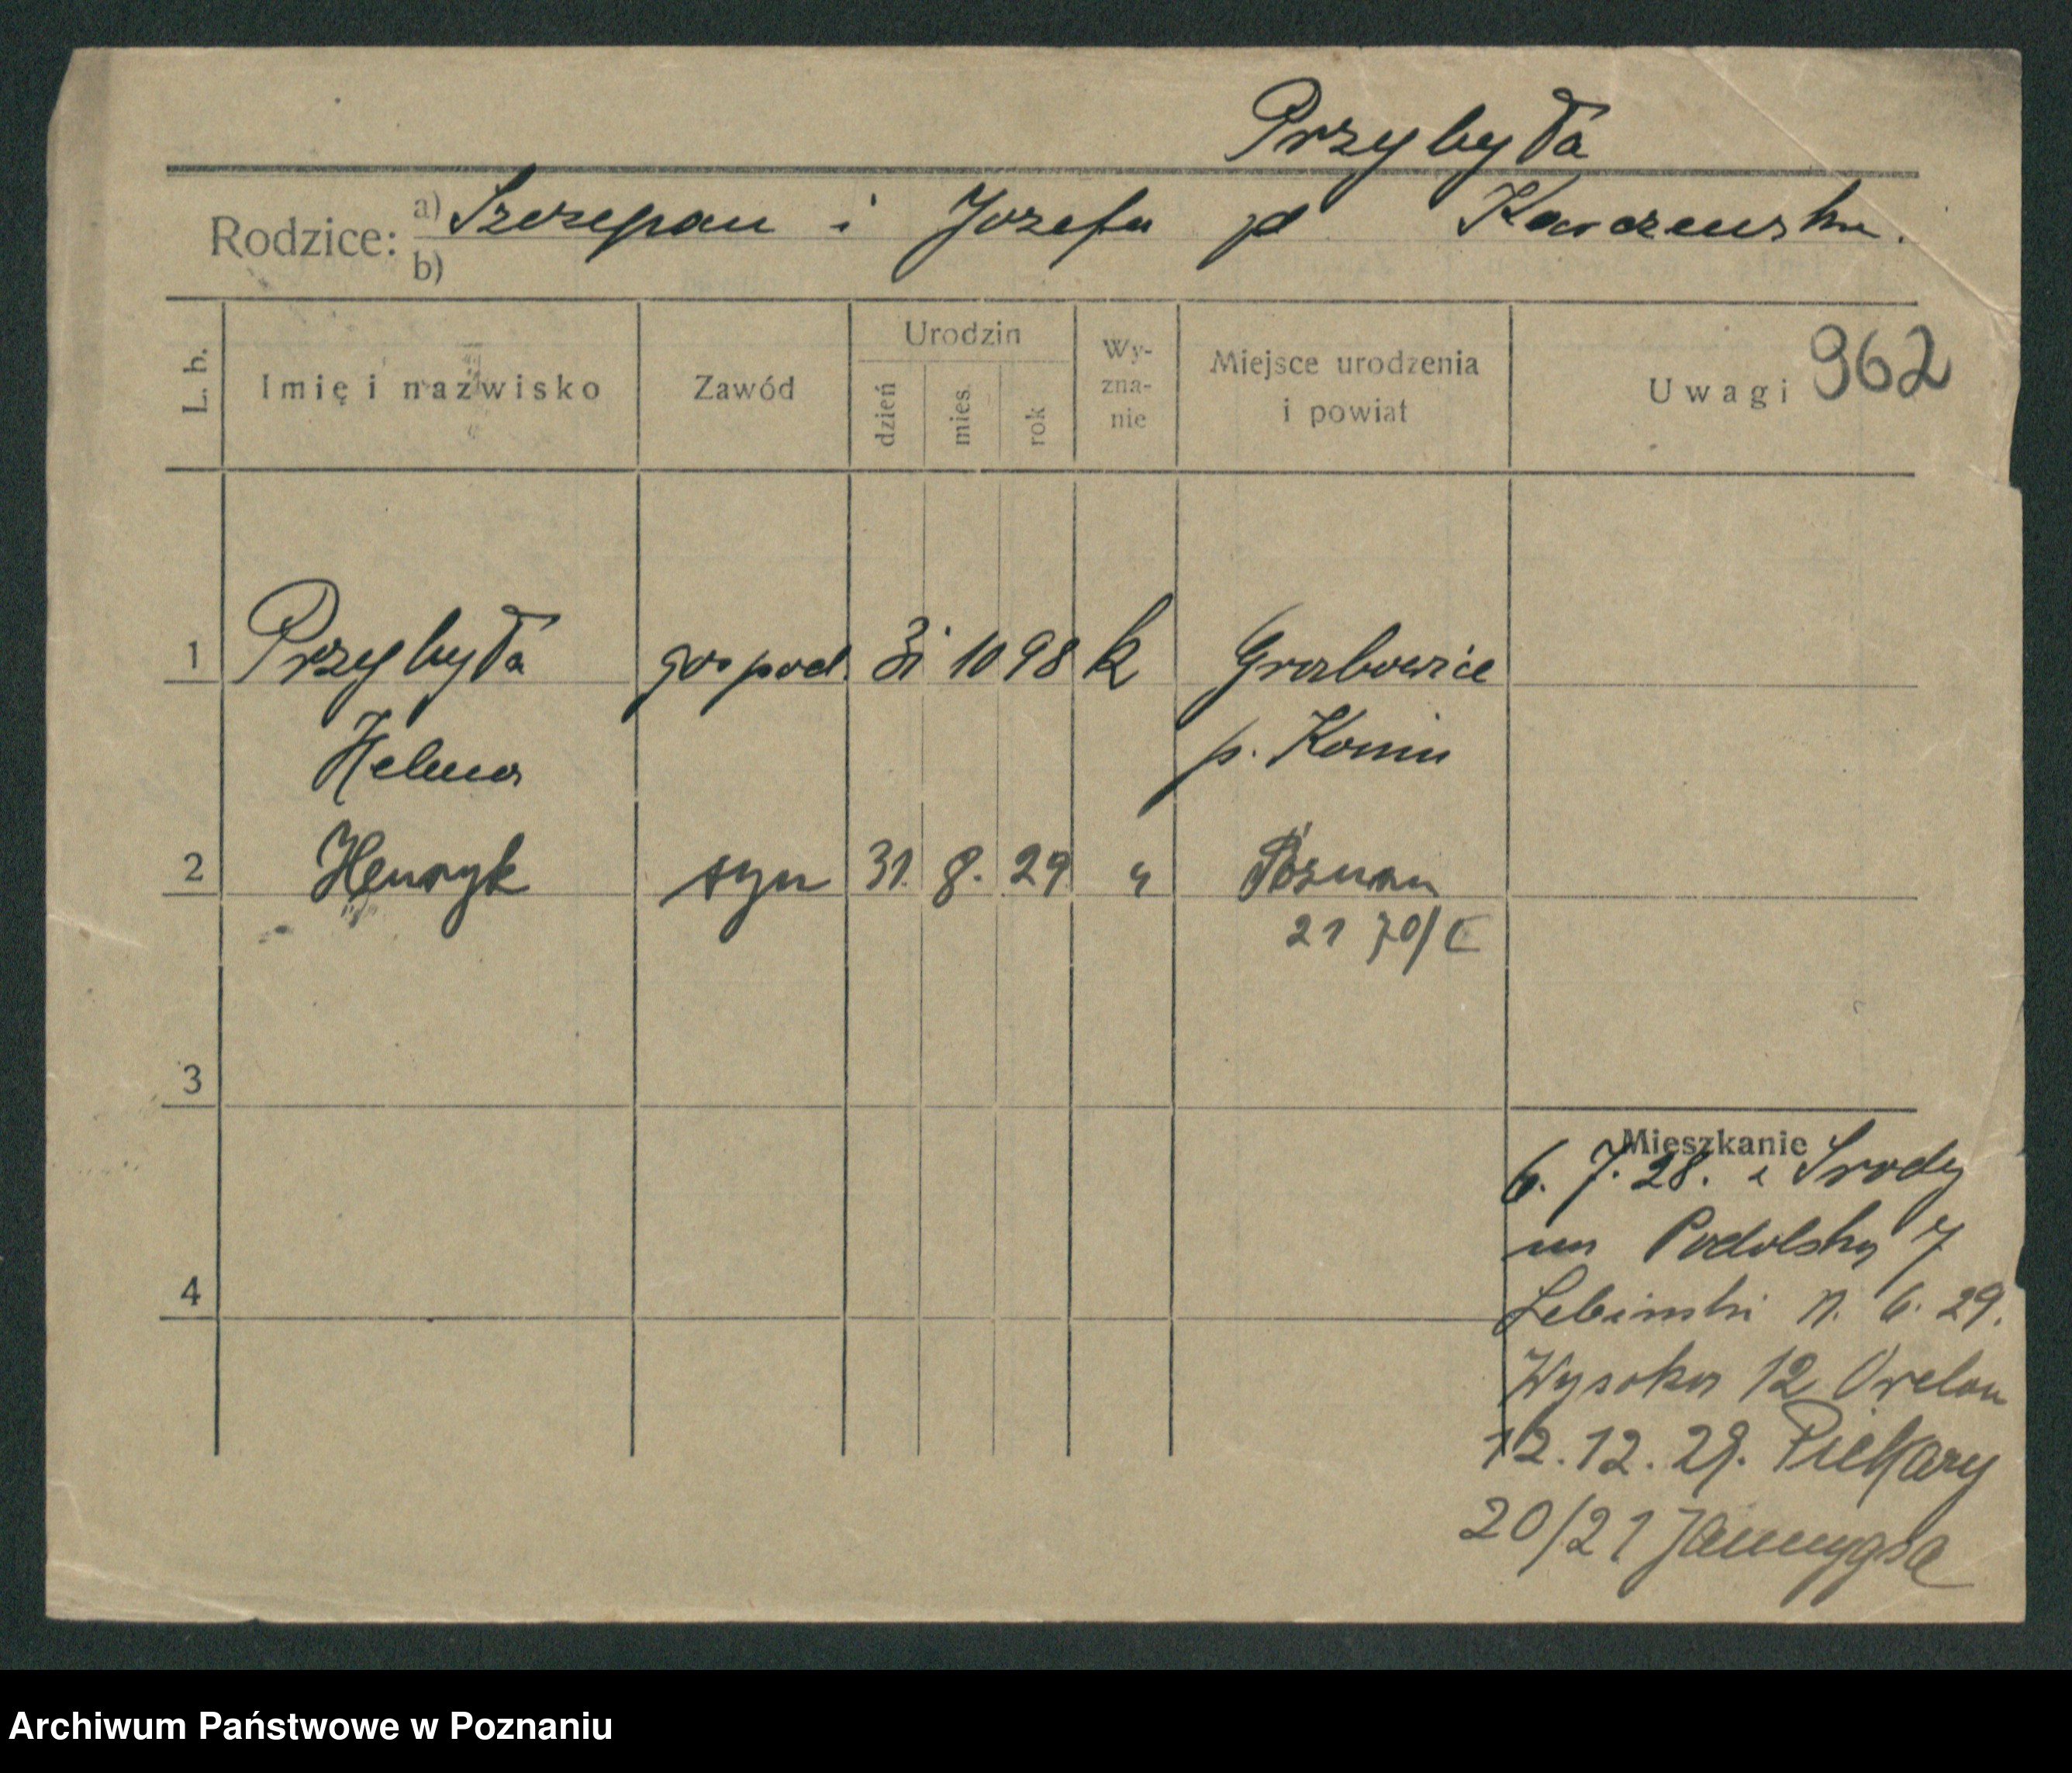 Przybyła
Rodzice: a) Szczepan i Józefa zd Karczewska.
b)
L. b. Imię i nazwisko Zawód Urodzin dzień mies. rok Wy-zna-nie Miejsce urodzenia i powiat Uwagi 962
1 Przybyła gospod. 31 10 98 k Grabowice
Helena p. Konin
2 Henryk syn 31. 8. 29 " Poznań
2170/
3
4
Mieszkanie
6. 7. 28. z Środy
na Podolską 7
Lebiński 11. 6. 29.
Wysoka 12
12. 12. 29. Piekary
20/21
Archiwum Państwowe w Poznaniu